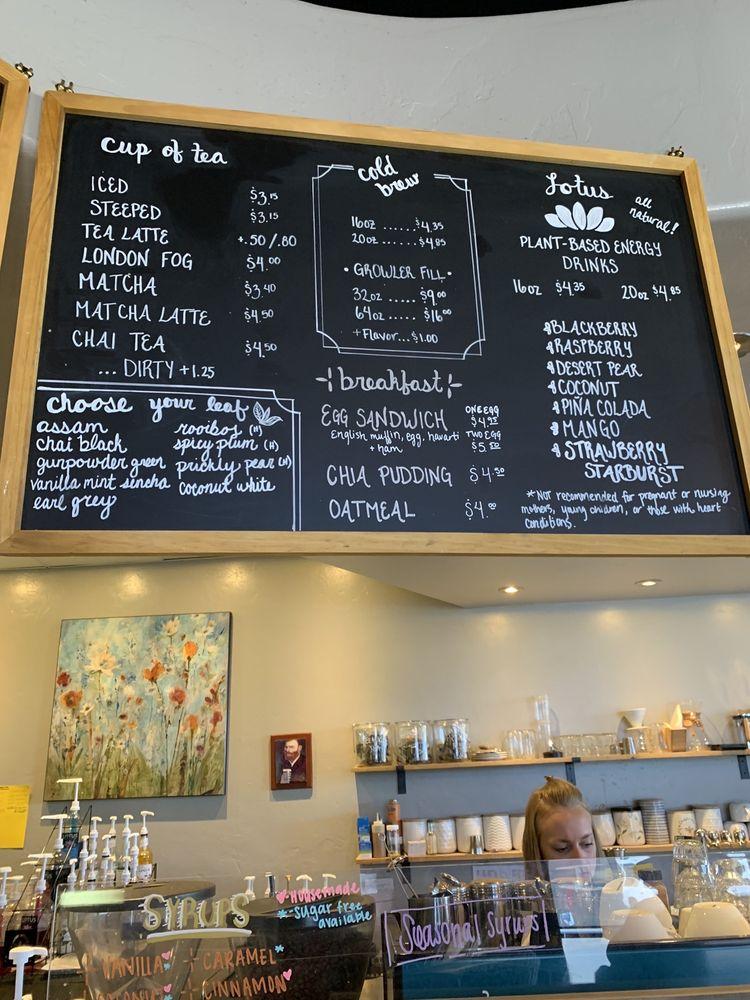 cup of tea
ICED $3.15
STEEPED $3.15
TEA LATTE +.50/.80
LONDON FOG $4.00
MATCHA $3.40
MATCHA LATTE $4.50
CHAI TEA $4.50
... DIRTY +1.25
choose your leaf
assam
chai black
gunpowder green
vanilla mint sencha
earl grey
rooibos (H)
spicy plum (H)
prickly pear (H)
coconut white
cold brew
16oz ...... $4.35
20oz ...... $4.85
• GROWLER FILL •
32oz ..... $9.00
64oz ..... $16.00
+Flavor... $1.00
breakfast
EGG SANDWICH ONE EGG $4.95
English muffin, egg, havarti TWO EGG
+ ham $5.50
CHIA PUDDING $4.50
OATMEAL $4.00
Lotus
all natural!
PLANT-BASED ENERGY
DRINKS
16oz $4.35 20oz $4.85
BLACKBERRY
RASPBERRY
DESERT PEAR
COCONUT
PIÑA COLADA
MANGO
STRAWBERRY
STARBURST
*Not recommended for pregnant or nursing
mothers, young children, or those with heart
conditions.
SYRUPS
Homemade
*Sugar free
available
VANILLA
CARAMEL*
CINNAMON
Seasonal Syrups